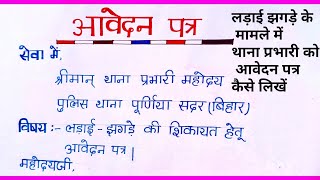 आवेदन पत्र
सेवा में,
श्रीमान् थाना प्रभारी महोदय
पुलिस थाना पूर्णिया सदर (बिहार)
विषय :- लड़ाई - झगड़े की शिकायत हेतू
आवेदन पत्र |
महोदयजी,
लड़ाई झगड़े के
मामले में
थाना प्रभारी को
आवेदन पत्र
कैसे लिखें